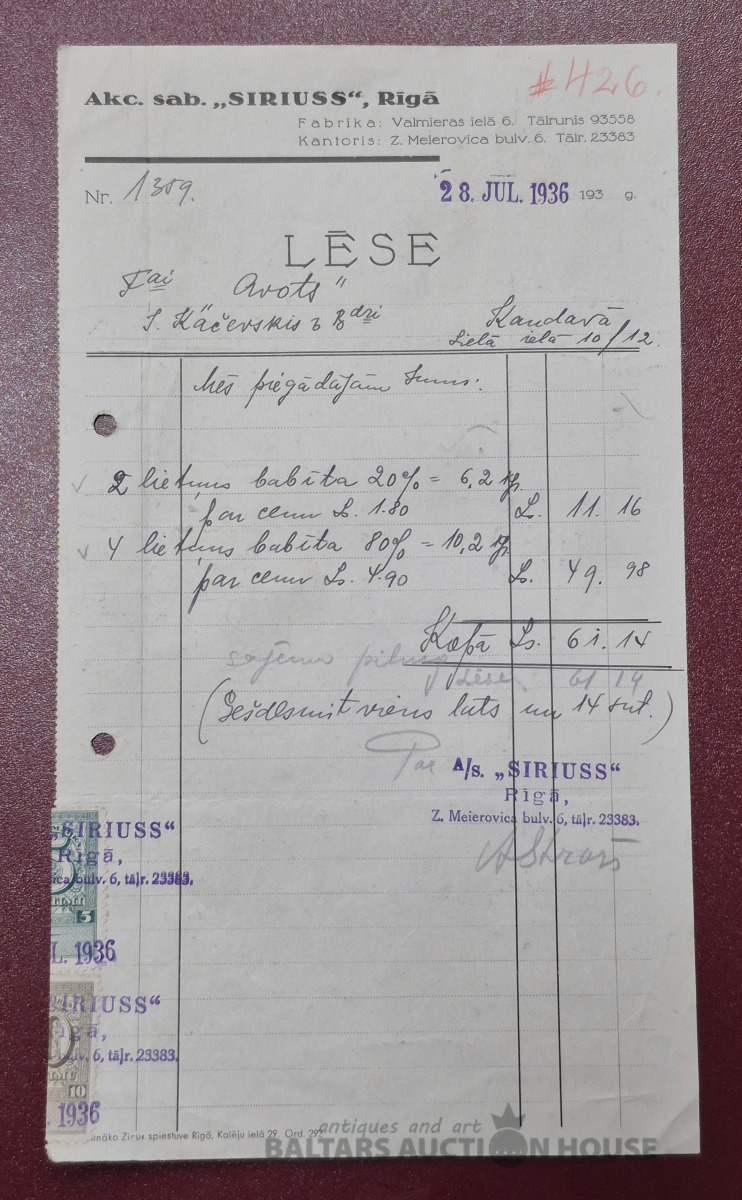 Akc. sab. „SIRIUSS“, Rīgā
#426.
Fabrika: Valmieras ielā 6. Tālrunis 93558
Kantoris: Z. Meierovica bulv. 6. Tālr. 23383
Nr. 1359.
28. JUL. 1936 193 g.
LĒSE
Fai „Avots“
Kandavā
Lielā ielā 10/12.
Mēs piegādājām Jums:
2 lietuņs babīta 20% = 6,2 kg.
par cenu Ls. 1.80 Ls. 11. 16
4 lietuņs babīta 80% = 10,2 kg.
par cenu Ls. 4.90 Ls. 49. 98
Kopā Ls. 61. 14
61 14
(Sešdesmit viens lats un 14 snt.)
Par A/s. „SIRIUSS“
Rīgā,
Z. Meierovica bulv. 6, tāļr. 23383.
„SIRIUSS“
Rīgā,
ica bulv. 6, tāļr. 23383.
5
L. 1936
SIRIUSS“
Rīgā,
ulv. 6, tāļr. 23383.
10
1936
spiestuve Rīgā, Kalēju ielā 29. Ord. 292
antiques and art
BALTARS AUCTION HOUSE